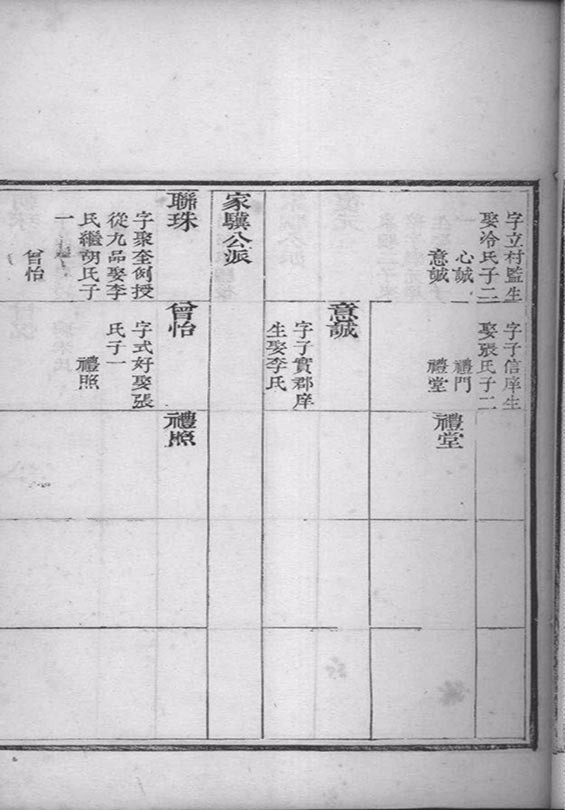 字立村監生
娶冷氏子二
心誠
意誠
字子信庠生
娶張氏子二
禮門
禮堂
禮堂
意誠
字子實郡庠
生娶李氏
家驥公派
聯珠
字聚奎例授
從九品娶李
氏繼胡氏子
一
曾怡
曾怡
字式好娶張
氏子一
禮照
禮照